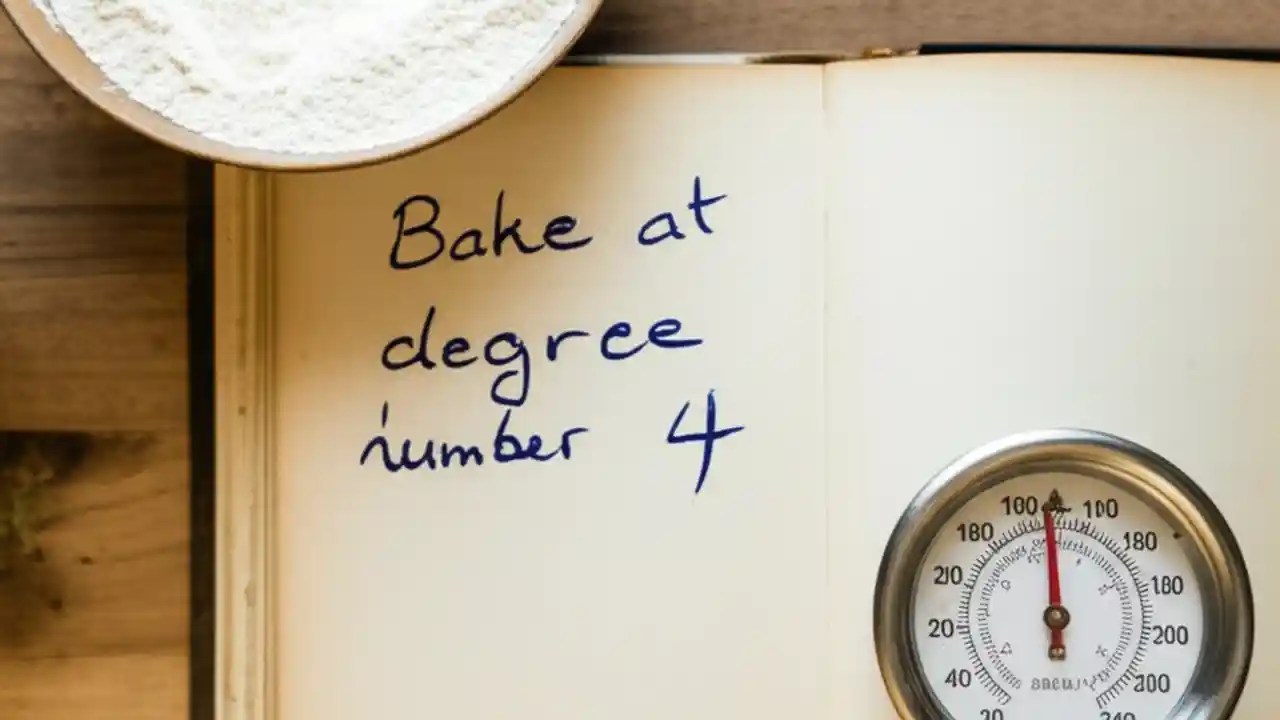 Bake at
degree
number 4
100
100
180
180
20
180
20
200
40
200
20
240